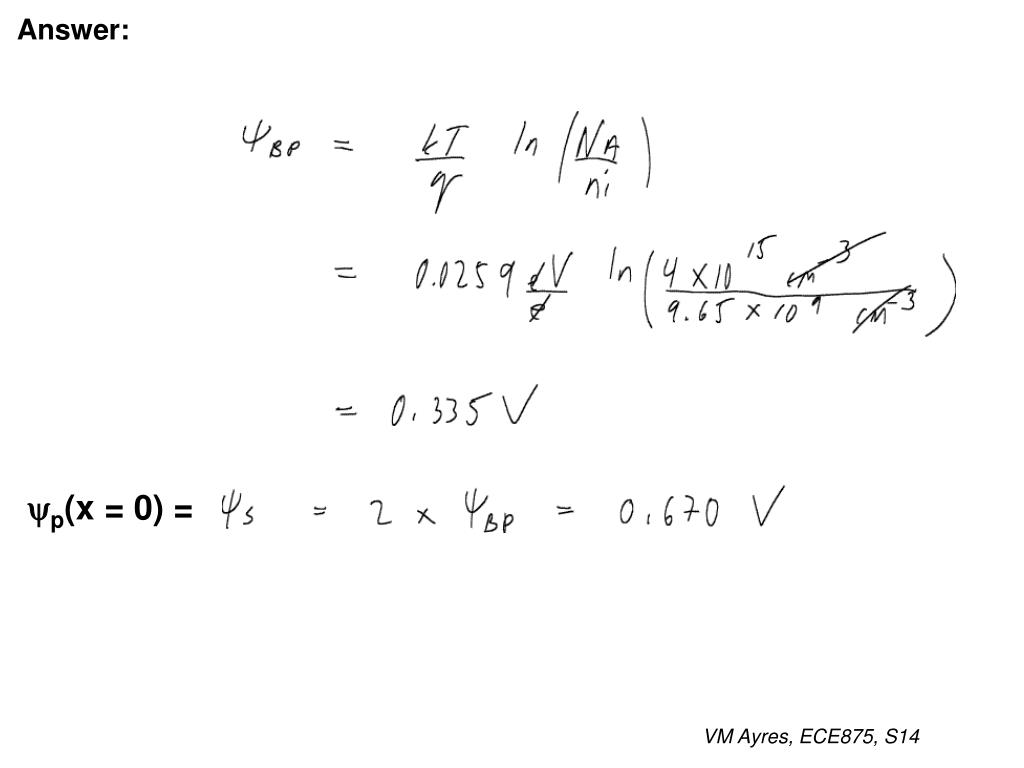 Answer:
ψBP = kT/q ln (NA/ni)
= 0.0259 eV/e ln (4 × 10^15 cm^-3 / 9.65 × 10^9 cm^-3)
= 0.335 V
ψp(x = 0) = ψs = 2 × ψBP = 0.670 V
VM Ayres, ECE875, S14